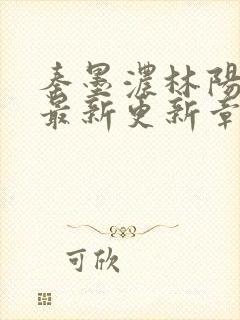 秦墨濃林陽
最新更新章
可欣